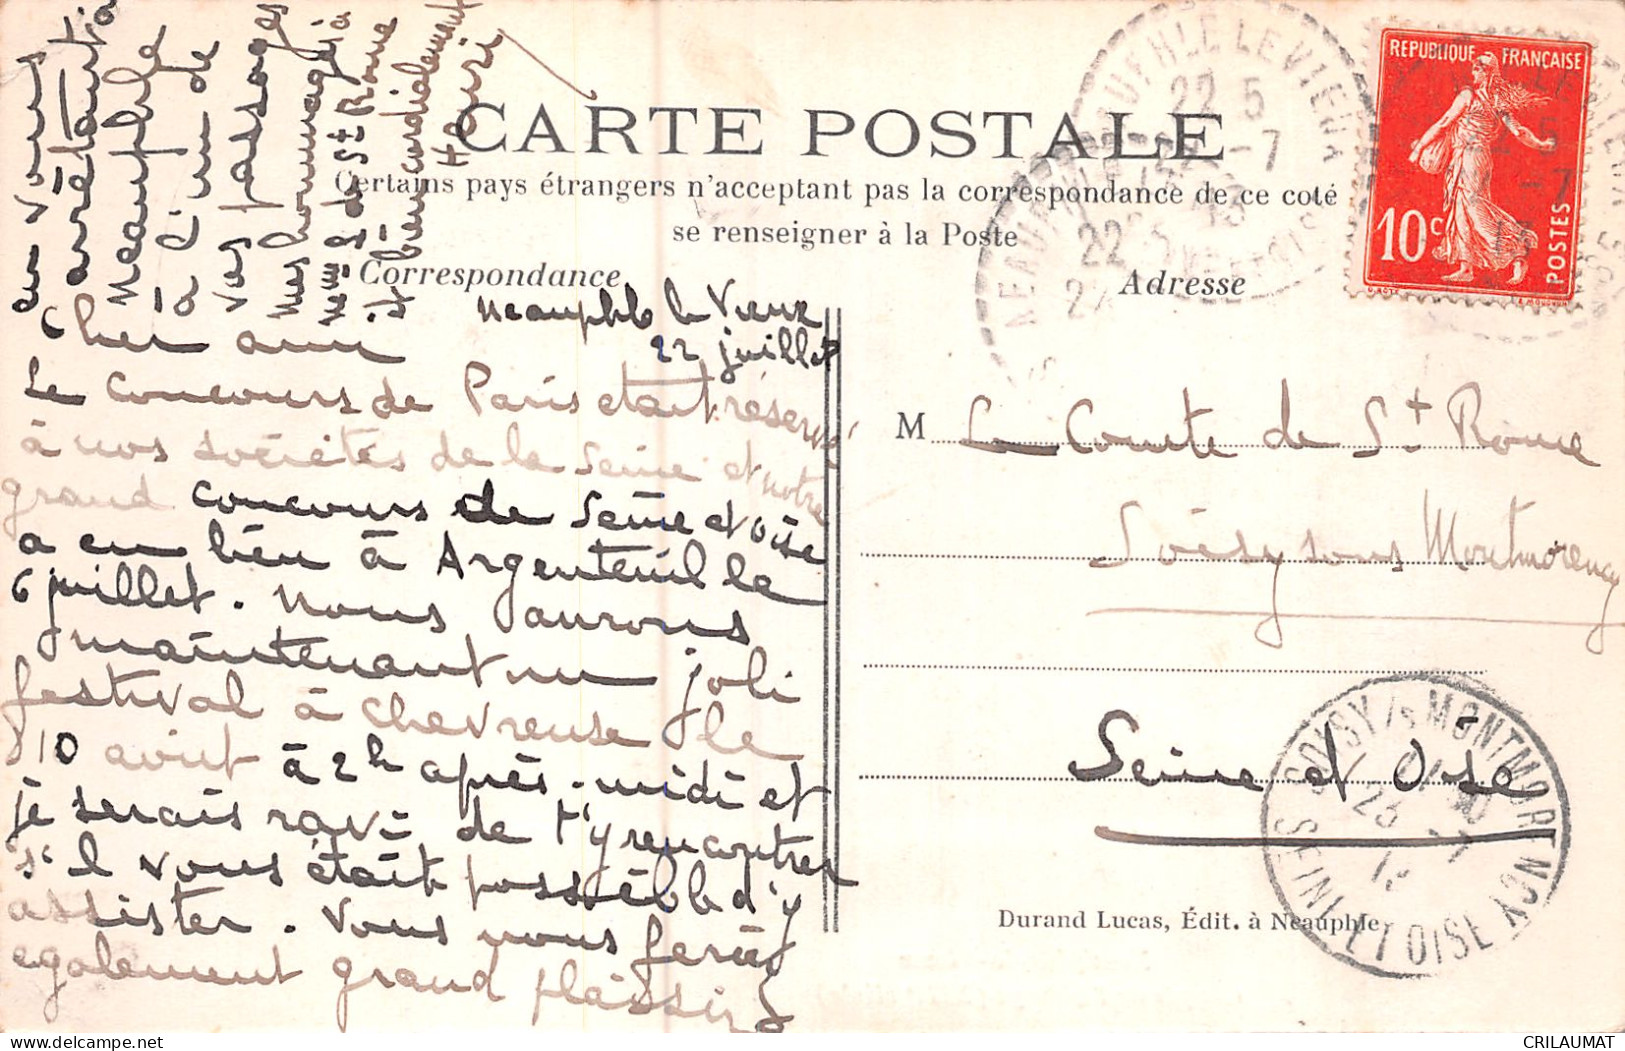 CARTE POSTALE
Certains pays étrangers n'acceptent pas la correspondance de ce coté
se renseigner à la Poste
Correspondance
Adresse
REPUBLIQUE FRANÇAISE
10c
POSTES
Neauphle le Vieux
22 juillet
Cher ami
Le concours de Paris etait réservé
à nos sociétés de la Seine et notre
grand concours de Seine et Oise
a eu lieu à Argenteuil le
6 juillet. Nous aurons
maintenant un joli
festival à Chevreuse le
10 aout à 2h après-midi et
je serais ravi de t'y rencontrer
s'il vous était possible d'y
assister. Vous nous feriez
egalement grand plaisir
en vous
arrêtant à
Neauphle
à l'un de
vos passages
Mes hommages à
Mme de St Rome
et bien cordialement
Henri
M Le Comte de St Rome
Soisy sous Montmorency
Seine et Oise
SOISY /s MONTMORENCY
SEINE ET OISE
Durand Lucas, Édit. à Neauphle
CRILAUMAT